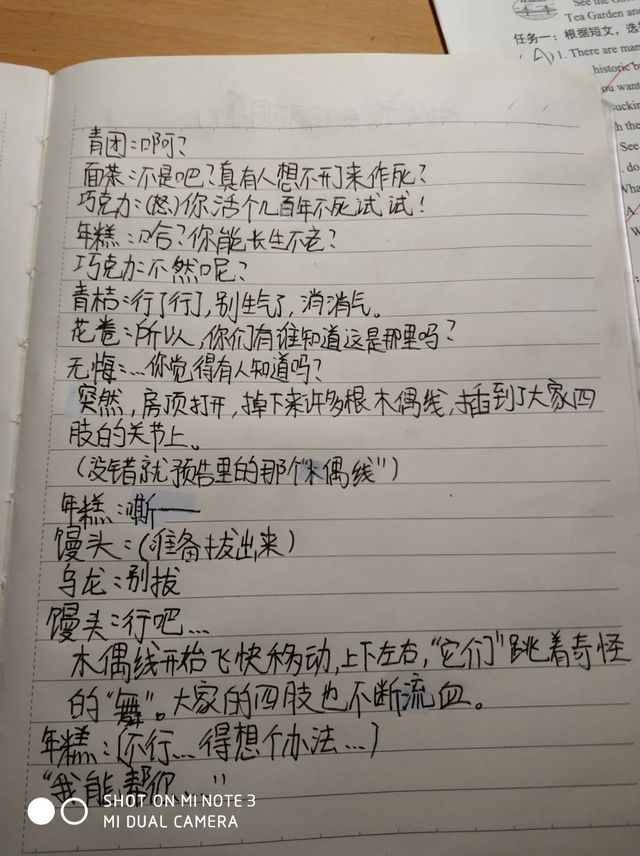 See the Gol
Tea Garden and
任务一：根据短文，选
(A)1. There are man
historic b
ou want
ucki
h the
See
do
Wha
青团：啊？
面茶：不是吧？真有人想不开来作死？
巧克力：(怒)你活个几百年不死试试！
年糕：哈？你能长生不老？
巧克力：不然呢？
青桔：行了行了，别生气了，消消气。
花卷：所以，你们有谁知道这是那里吗？
无悔：…你觉得有人知道吗？
突然，房顶打开，掉下来许多根木偶线，插到了大家四
肢的关节上。
(没错就预告里的那个“木偶线”)
年糕：嘶——
馒头：(准备拔出来)
乌龙：别拔
馒头：行吧…
木偶线开始飞快移动，上下左右，“它们”跳着奇怪
的“舞”。大家的四肢也不断流血。
年糕：(不行…得想个办法…)
“我能帮你…”
SHOT ON MI NOTE 3
MI DUAL CAMERA